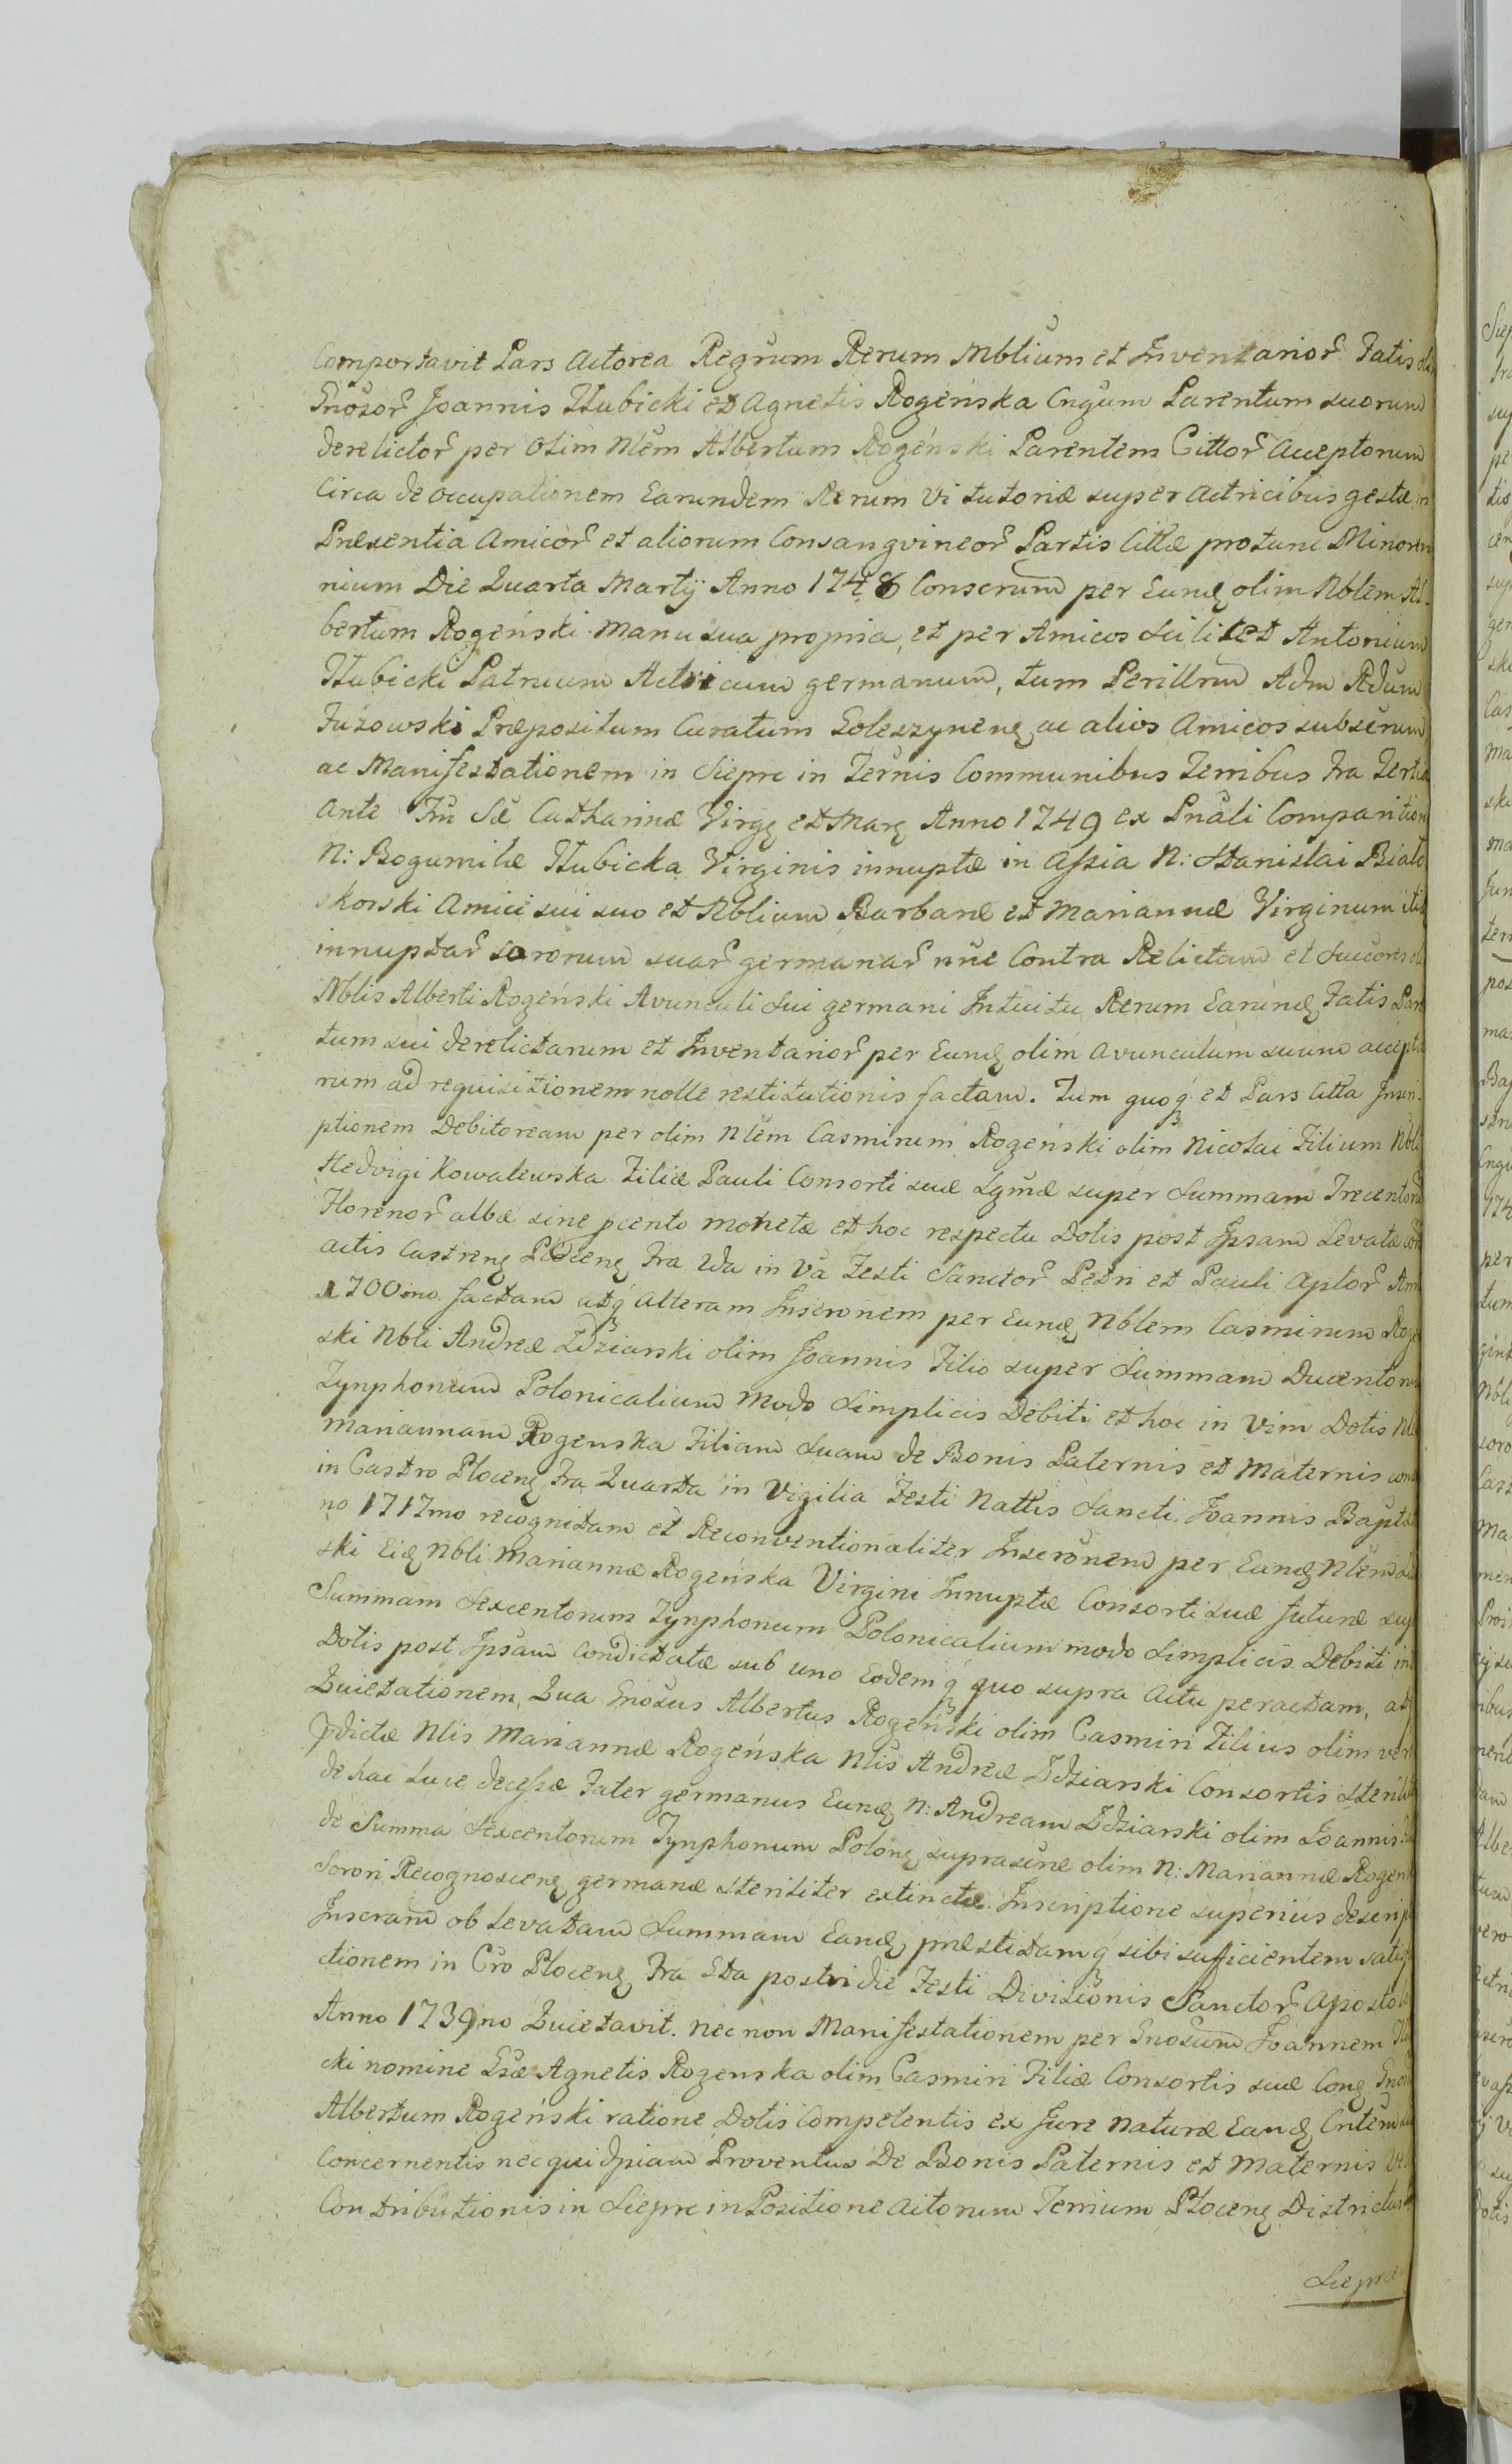 Comportavit Pars Actorea Regrum Rerum Mblium et Inventarior Fatis
Gnosor Joannis Hubicki et Agnetis Rogeńska Cngum Parentum suorum
derelictor per olim Nlem Albertum Rogeński Parentem Cittor Acceptorum
Circa de occupationem Earundem Rerum Vi tutoriæ super Actricibus gestæ in
Præsentia Amicor et aliorum Consangvineor Partis Cittæ protunc Minoren
nium Die Quarta Martÿ Anno 1748 Conscrum per Eund olim Nblem Al-
bertum Rogeński Manu sua propria, et per Amicos Scilicet Antonium
Hubicki Patruum Actricum germanum, tum Perillrm Adm Rdum
Fuzowski Præpositum Curatum Goleszynens ac alios Amicos subscrum
ac Manifestationem in Siepre in Ternis Communibus Terribus Fra Tertia
Ante Fm Sæ Catharinæ Virg et Mar Anno 1749 ex Pnali Comparition
N: Bogumilæ Hubicka Virginis innuptæ in Assia N: Stanislai Biało
skorski Amici sui suo et Nblium Barbaræ et Mariannæ Virginum itid
innuptar Sororum suar germanar nūc Contra Relictam et Succores
Nblis Alberti Rogeński Avunculi sui germani Intuitu Rerum Earund Fatis Paren
tum sui derelictarum et Inventarior per Eund olim Avunculum suum accepta
rum ad requisitionem nolle restitutionis factam. Tum quoq et Pars Citta Inscri-
ptionem Debitoream per olim Nlem Casmirum Rogeński olim Nicolai Filium Nbli
Hedvigi Kowalewska Filiæ Pauli Consorti suæ Lgmæ super Summam Trecentor
Florenor albæ sine pcento Monetæ et hoc respectu Dotis post Ipsam Levatæ
actis Castrens Plocens Fra 2da in Va Festi Sanctor Petri et Pauli Aplor Ann
1700mo factam atq Alteram Inscronem per Eund Nblem Casmirum Roge
ski Nbli Andreæ Zdziarski olim Joannis Filio super Summam Ducentorum
Tynphorum Polonicalium Modo Simplicis Debiti et hoc in Vim Dotis
Mariannam Rogenska Filiam Suam de Bonis Paternis et Maternis
in Castro Plocens Fra Quarta in Vigilia Festi Nattis Sancti Joannis Baptæ
no 1717mo recognitam et Reconventionaliter Inscronem per Eund Nlem
ski Eid Nbli Mariannæ Rogeńska Virgini Innuptæ Consorti suæ futuræ sup
Summam Sexcentorum Tynphorum Polonicalium modo Simplicis Debiti
Dotis post Ipsam Condictatæ sub uno Eodemq quo supra Actu peractam, atq
Quietationem, Qua Gnosus Albertus Rogeński olim Casmiri Filius olim
Pdictæ Nlis Mariannæ Rogeńska Nlis Andreæ Zdziarski Consortis sterilit
de hac Luce decessæ Frater germanus Eund N: Andream Zdziarski olim Joannis
de Summa Sexcentorum Tynphorum Polon suprascræ olim N: Mariannæ Rogen
Sorori Recognoscens germanæ steriliter extinctæ Inscriptione superius descrip
Inscram ob Levatam Summam Eand, præstitamq sibi sufficientem satisfa
ctionem in Cro Plocens Fra 6ta postridie Festi Divisionis Sanctor Apostol
Anno 1739no Quietavit. Nec non Manifestationem per Gnosum Joannem
cki nomine Gsæ Agnetis Rogenska olim Casmiri Filiæ Consortis suæ Con Gnos
Albertum Rogeński ratione Dotis Competentis ex Jure Naturæ Eand Cntem
Concernentis nec quidpiam Proventus De Bonis Paternis et Maternis
Contributionis in Siepre in Positione Actorum Terrium Plocens Districtus
Siepre